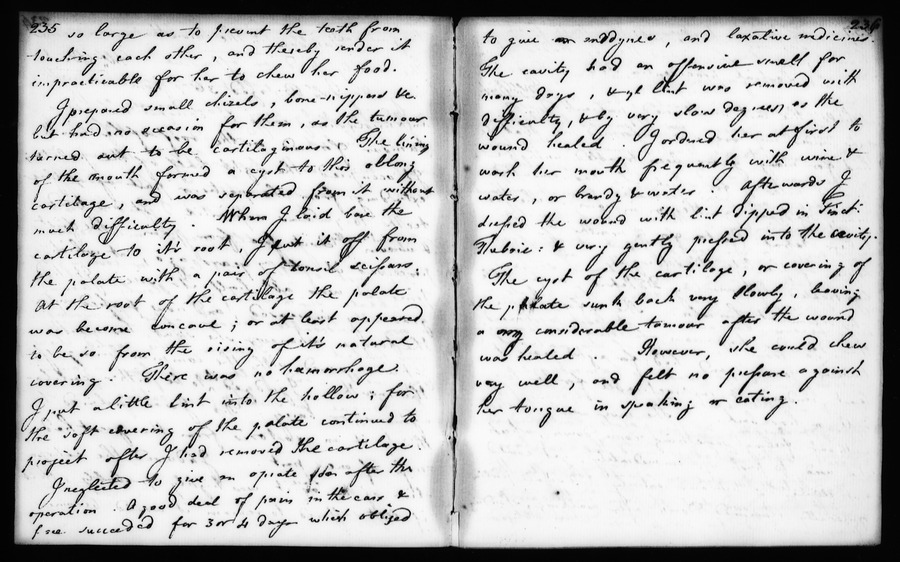 235
so large as to prevent the teeth from
touching each other, and thereby render it
impracticable for her to chew her food.
I prepared small chizels, bone-nippers &c
but had no occasion for them, as the tumour
turned out to be cartilaginous. The lining
of the mouth formed a cyst to this oblong
cartilage, and was separated from it without
much difficulty. When I laid bare the
cartilage to it's root, I cut it off from
the palate with a pair of tonsil scissars.
At the root of the cartilage the palate
was become concave; or at least appeared
to be so from the rising of it's natural
covering. There was no hæmorrhage.
I put a little lint into the hollow; for
the soft covering of the palate continued to
project after I had removed the cartilage.
I neglected to give an opiate soon after the
operation. A good deal of pain in the ears &
face succeeded for 3 or 4 days which obliged
236
to give anodynes, and laxative medicines.
The cavity had an offensive smell for
many days, & yt lint was removed with
difficulty, & by very slow degrees, as the
wound healed. I ordered her at first to
wash her mouth frequently with wine &
water, or brandy & water. Afterwards I
dressed the wound with lint dipped in Tinct:
Thebaic: & very gently pressed into the cavity.
The cyst of the cartilage, or covering of
the palate sunk back very slowly, leaving
a considerable tumour after the wound
was healed. However, she could chew
very well, and felt no pressure against
her tongue in speaking or eating.